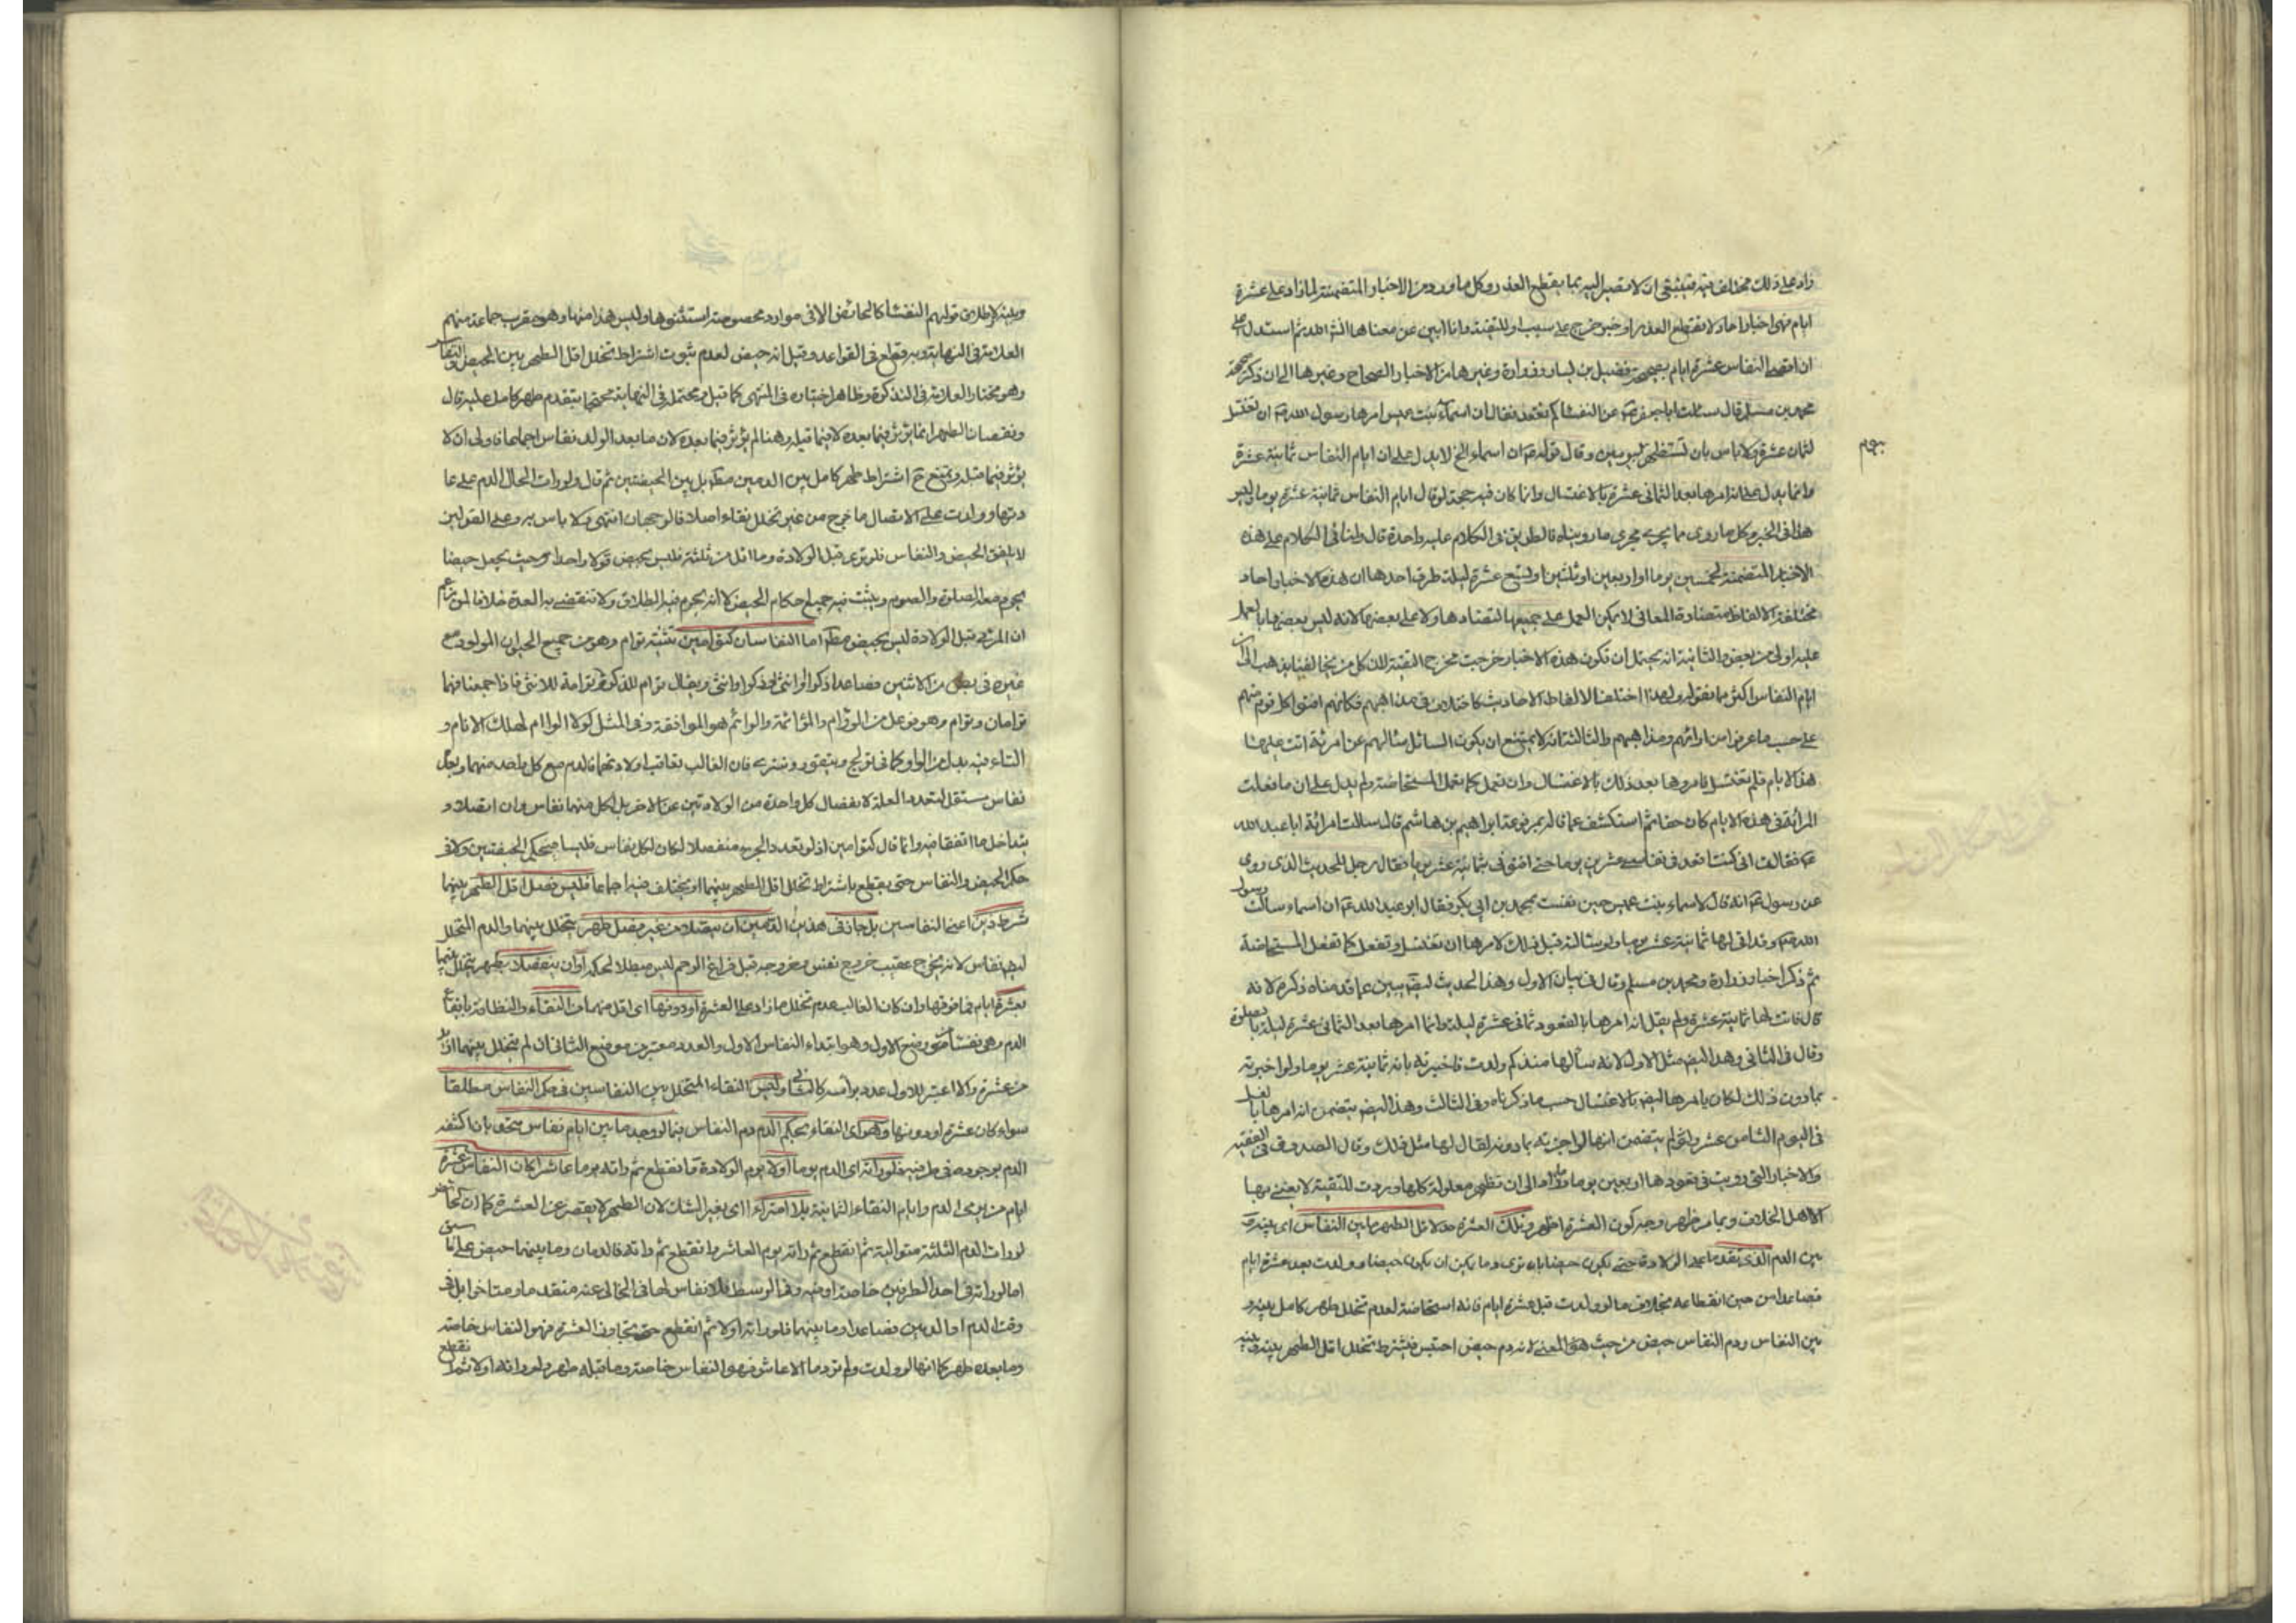 زاد على ذلك مختلف فيه فينبغي ان لا مصير اليه بما يقطع العذر وكل ما ورد من الاخبار المتضمنة لما زاد على عشرة
ايام فهى اخبار احاد لا تقطع العذر او خبر خرج على سبب او للتقية وانا ابين عن معناها انش الله ثم استدل على
ان اقصى النفاس عشرة ايام بصحيحة فضيل بن يسار وزرارة وغيرها من الاخبار الصحاح وغيرها الى ان ذكر صحيحة
محمد بن مسلم قال سئلت ابا جعفر ع عن النفساء كم تقعد فقال ان اسماء بنت عميس امرها رسول الله ص ان تغتسل
لثمان عشرة ولا باس بان تستظهر بيوم او يومين وقال قوله ع ان اسماء الخ لا يدل على ان ايام النفاس ثمانية عشرة
وانما يدل على انه امرها بعد الثماني عشرة بالاغتسال وانما كان فيه حجة لو قال ايام النفاس ثمانية عشرة يوما وليس
هذا في الخبر وكل ما روى مما يجري مجرى ما رويناه فالطريق في الكلام عليه واحدة قال ولنا في الكلام على هذه
الاخبار المتضمنة لخمسين يوما او اربعين او ثلثين او تسع عشرة ليلة طرق احدها ان هذه الاخبار احاد
مختلفة الالفاظ متضادة المعاني لا يمكن العمل على جميعها لتضادها ولا على بعضها لانه ليس بعضها بالعمل
عليه اولى من بعض والثانية انه يحتمل ان تكون هذه الاخبار خرجت مخرج التقية لان كل من يخالفنا يذهب الى ان
ايام النفاس اكثر مما نقوله ولهذا اختلفت الالفاظ الاحاديث كاختلافهم في مذاهبهم فكانهم افتوا كل قوم منهم
على حسب ما عرفوا من ارائهم ومذاهبهم والثالثة انه لا يمتنع ان يكون السائل سالهم عن امرئة اتت عليها
هذه الايام فلم تغتسل فامروها بعد ذلك بالاغتسال وان تعمل كما تعمل المستحاضة ولم يدل على ان ما فعلت
المرائة في هذه الايام كان حقا ثم استكشف عما قاله بمرفوعة ابراهيم بن هاشم قال سالت امرائة ابا عبد الله
ع فقالت انى كنت اقعد في نفاسى عشرين يوما حتى افتونى بثمانية عشر يوما فقال رجل للحديث الذى روى
عن رسول الله ص انه قال لاسماء بنت عميس حين نفست بمحمد بن ابى بكر فقال ابو عبد الله ع ان اسماء سالت رسول
الله ص وقد اتى لها ثمانية عشر يوما ولو سالته قبل ذلك لامرها ان تغتسل وتفعل كما تفعل المستحاضة
ثم ذكر اخبار زرارة ومحمد بن مسلم وقال في بيان الاول وهذا الحديث ايضا يبين عما قدمناه ذكره لانه
قال فاتت لها ثمانية عشرة ولم يقل انه امرها بالقعود ثماني عشرة ليلة وانما امرها بعد الثماني عشرة ليلة بالصلوة
وقال في الثاني وهذا ايضا مثل الاول لانه سألها منذ كم ولدت فاخبرته بانه ثمانية عشر يوما ولو اخبرته
بما دون ذلك لكان يامرها ايضا بالاغتسال حسب ما ذكرناه وفي الثالث وهذا ايضا يتضمن انه امرها بالغسل
في اليوم الثامن عشر وليس يتضمن انها لو اخبرته بما دونه لقال لها مثل ذلك وقال الصدوق في الفقيه
والاخبار التي رويت في قعودها اربعين يوما وما زاد الى ان تطهر معلولة كلها وردت للتقية لا يفتى بها
الا اهل الخلاف وبما مر ظهر وجه كون العشرة اظهر وتلك العشرة هى اقل الطهر ما بين النفاس اى بينه و
بين الدم الذى تقدمه على الولادة حتى يكون حيضا بان ترى وما يمكن ان يكون حيضا وولدت بعد عشرة ايام
فصاعدا من حين انقطاعه بخلاف ما لو ولدت قبل عشرة ايام فانه استحاضة لعدم تخلل طهر كامل بينه و
بين النفاس ودم النفاس حيض من حيث المعنى لانه دم حيض احتبس فيشترط تخلل اقل الطهر بينه وبينه
ويبنه لاطلاق قولهم النفساء كالحائض الا في موارد مخصوصة استثنوها وليس هذا منها وهو مقرب جماعة منهم
العلامة في النهاية وبه قطع في القواعد وقيل انه حيض لعدم ثبوت اشتراط تخلل اقل الطهر بين الحيض والنفاس
وهو مختار العلامة في التذكرة وظاهر اختياره في المنتهى كما قيل ومحتمله في النهاية محتجا بتقدم طهر كامل عليه قال
ونقصان الطهر انما يؤثر فيما بعده لا فيما قبله وهنا لم يؤثر فيما بعده لان ما بعد الولد نفاس اجماعا فاولى ان لا
يؤثر فيما قبله ويمنع ح اشتراط طهر كامل بين الدمين مطلقا بل بين الحيضتين ثم قال ولو رات الحامل الدم على عا
دتها وولدت على الاتصال ما خرج من غير تخلل نقاء اصلا فالوجهان انتهى ولا باس به وعلى القولين
لا يلفق الحيض والنفاس فلو ترى قبل الولادة وما اقل من ثلثة فليس بحيض قولا واحدا وحيث يجعل حيضا
يحرم معه الصلوة والصوم ويثبت فيه جميع احكام الحيض الا انه يحرم فيه الطلاق ولا تنقضى به العدة خلافا لمن زعم
ان المرئى قبل الولادة ليس بحيض مطلقا اما النفاسان كتوامين تثنية توام وهو من جميع الحيوان المولود مع
غيره في بطن من الاثنين فصاعدا ذكرا او انثى او ذكرا وانثى ويقال توام للذكر وتوامة للانثى فاذا جمعتا فهما
توامان وتوام وهو فوعل من الوؤام والموائمة والوائم هو الموافقة وفي المثل لولا الوام لهلك الانام و
التاء فيه بدل من الواو كما في تولج وتيقور وتترى فان الغالب تعاقب ولادتهما فالدم مع كل واحد منهما ويجعل
نفاس مستقل لتعدد العلة لانفصال كل واحدة من الولادتين عن الاخر بل لكل منهما نفاس وان اتصلا و
يتداخل ما اتفقا فيه وانما قال كتوامين اذ لو تعدد الجزء منفصلا لكان لكل نفاس فليسا في حكم الحيضتين ولا في
حكم الحيض والنفاس حتى يقطع باشتراط تخلل اقل الطهر بينهما او يختلف فيه اجماعا فليس فصل اقل الطهر بينهما
شرط ذين اعنى النفاسين بل جاز في هذين الدمين ان يتصلا من غير فصل طهر يتخلل بينهما والدم المتخلل
ايضا نفاس لانه يخرج عقيب خروج نفس وخروجه قبل فراغ الرحم ليس مبطلا لحكمه او ان ينفصلا بطهر يتخلل بينهما
بعشرة ايام فما فوقها وان كان الغالب عدم تخلل ما زاد على العشرة او دونها اى اقل منهما من النقاء والنظافة بانقطاع
من عشرة والا اعتبر للاول عدد برأسه كالثانى وليس النقاء المتخلل بين النفاسين في حكم النفاس مطلقا
سواء كان عشرة او دونها وهو اى النقاء بحكم الدم دم النفاس فيما لو وجد ما بين ايام نفاس متحقق بان اكتنفه
الدم بوجوده في طرفيه فلو راته اى الدم يوما اولا يوم الولادة فانقطع ثم راته يوما عاشرا كان النفاس عشرة
ايام من يومى الدم وايام النقاء الثمانية بلا امتراء اى بغير الشك لان الطهر لا يقصر عن العشرة كما ان الحائض
لو رات الدم الثلثة متوالية ثم انقطع ثم راته يوم العاشر وانقطع ثم راته فالدمان وما بينهما حيض على ما سبق
اما لو راته في احد الطرفين خاصة او فيه وفي الوسط فلا نفاس لها في الخالى عنه متقدما ومتاخرا بل في
وقت الدم او الدمين فصاعدا وما بينهما فلو راته اولا ثم انقطع حتى تجاوز العشرة فهو النفاس خاصة
وما بعده طهر كما انها لو ولدت ولم تر دما الا عاشر فهو النفاس خاصة وما قبله طهر ولو راته اولا ثم انقطع